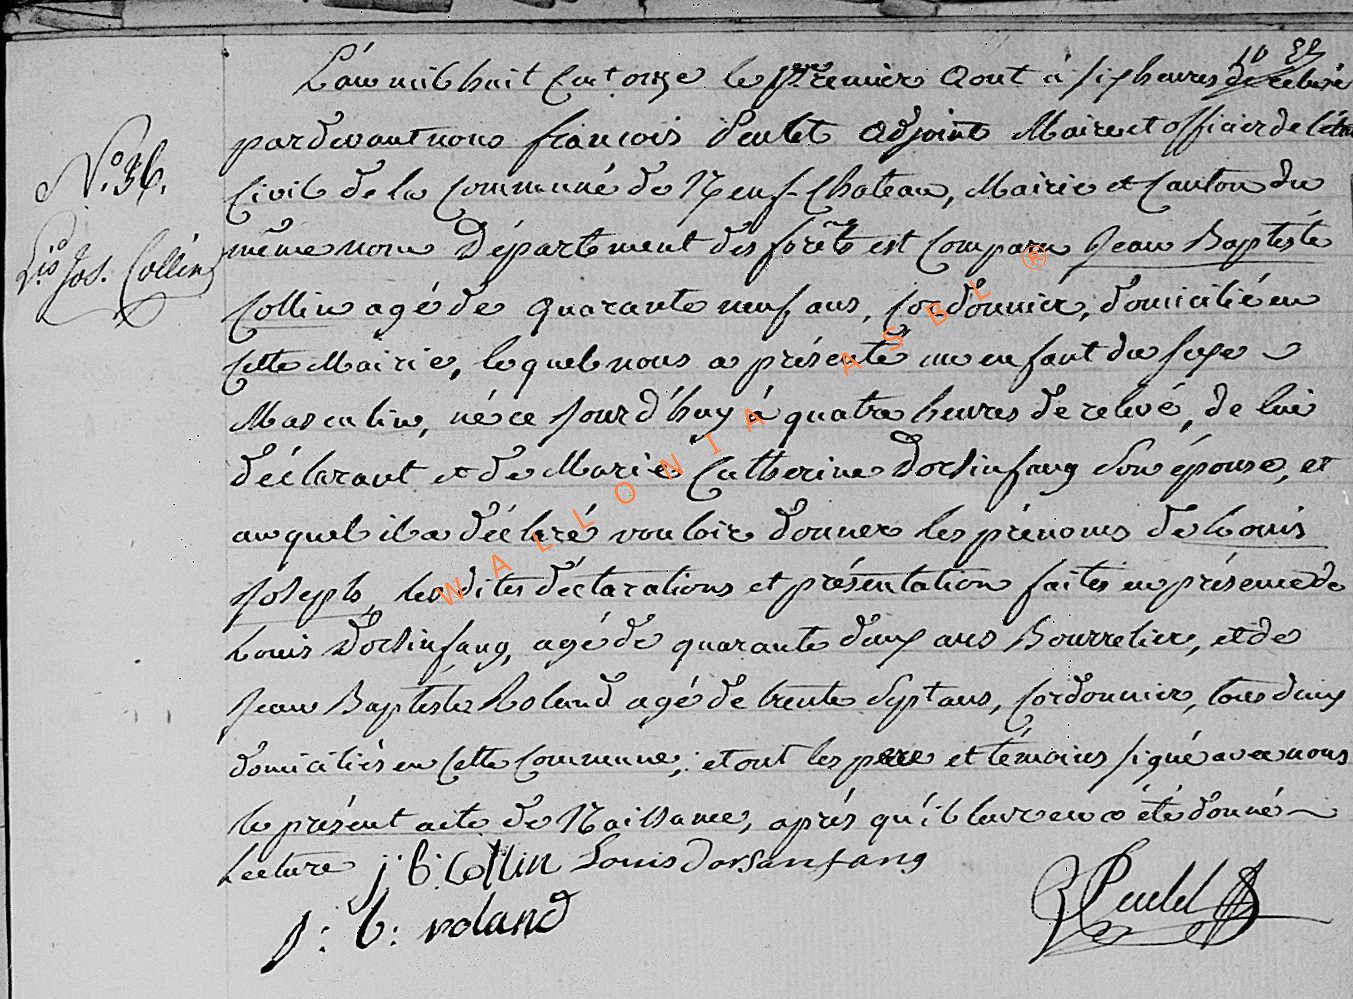 10 82
L'an mil huit Cent onze le premier Aout à six heures de relevé
pardevant nous françois Peulet Adjoint Maire et officier de l'état
Civil de la Commune de Neuf-Chateau, Mairie et Canton du
même nom Département des forêts est Comparu Jean Baptiste
Collin agé de quarante neuf ans, Cordonnier, domicilié en
Cette Mairie, lequel nous a présenté un enfant du sexe
Masculin, né ce jourd'huy à quatre heures de relevé, de lui
déclarant et de Marie Catherine Dorsinfang son épouse, et
auquel il a déclaré vouloir donner les prénoms de Louis
Joseph, les dites déclarations et présentation faites en présence de
Louis Dorsinfang, agé de quarante deux ans Bourrelier, et de
Jean Baptiste Roland agé de trente Sept ans, Cordonnier, tous deux
domiciliés en Cette Commune, et ont les pere et témoins signé avec nous
le présent acte de Naissance, après qu'il leur en a été donné
Lecture j. b. Collin Louis dorsanfang
j: b: roland
N.º 36.
L.is Jos. Collin
WALLONIA ASBL ®